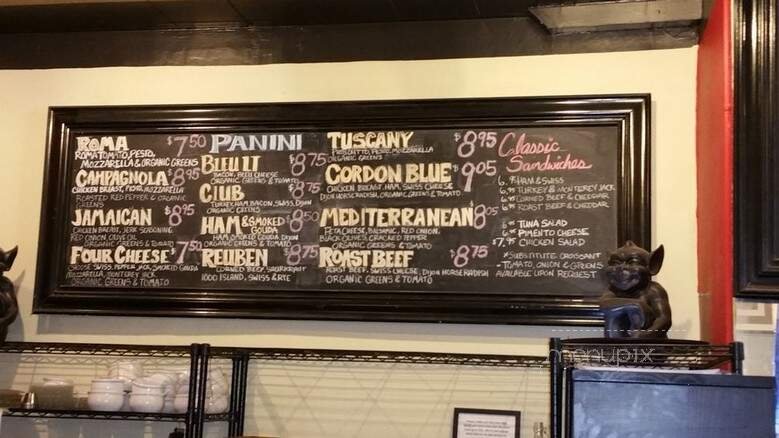 ROMA $7.50
ROMA TOMATO, PESTO,
MOZZARELLA & ORGANIC GREENS
CAMPAGNOLA $8.95
CHICKEN BREAST, PESTO, MOZZARELLA
ROASTED RED PEPPER & ORGANIC
GREENS
JAMAICAN $8.95
CHICKEN BREAST, JERK SEASONING
RED ONION, OLIVE OIL
ORGANIC GREENS & TOMATO
FOUR CHEESE $7.50
SWISS, PEPPER JACK, SMOKED GOUDA
MOZZARELLA, MONTEREY JACK
ORGANIC GREENS & TOMATO
PANINI
BLEU LT $8.75
BACON, BLEU CHEESE
ORGANIC GREENS & TOMATO
CLUB $8.75
TURKEY, HAM, BACON, SWISS, DIJON
ORGANIC GREENS
HAM & SMOKED GOUDA $8.50
HAM, SMOKED GOUDA, DIJON
ORGANIC GREENS & TOMATO
REUBEN $8.75
CORNED BEEF, SAUERKRAUT
1000 ISLAND, SWISS & RYE
TUSCANY $8.95
PROSCIUTTO, PESTO, MOZZARELLA
ORGANIC GREENS
CORDON BLUE $9.05
CHICKEN BREAST, HAM, SWISS CHEESE
DIJON HORSERADISH, ORGANIC GREENS & TOMATO
MEDITERRANEAN $8.05
FETA CHEESE, BALSAMIC, RED ONION,
BLACK OLIVES, CRACKED PEPPER
ORGANIC GREENS & TOMATO
ROAST BEEF $8.75
ROAST BEEF, SWISS CHEESE, DIJON HORSERADISH
ORGANIC GREENS & TOMATO
Classic
Sandwiches
HAM & SWISS
TURKEY & MONTEREY JACK
CORNED BEEF & CHEDDAR
ROAST BEEF & CHEDDAR
TUNA SALAD
PIMENTO CHEESE
CHICKEN SALAD
*SUBSTITUTE CROISSANT
-TOMATO, ONION & GREENS
AVAILABLE UPON REQUEST
menupix